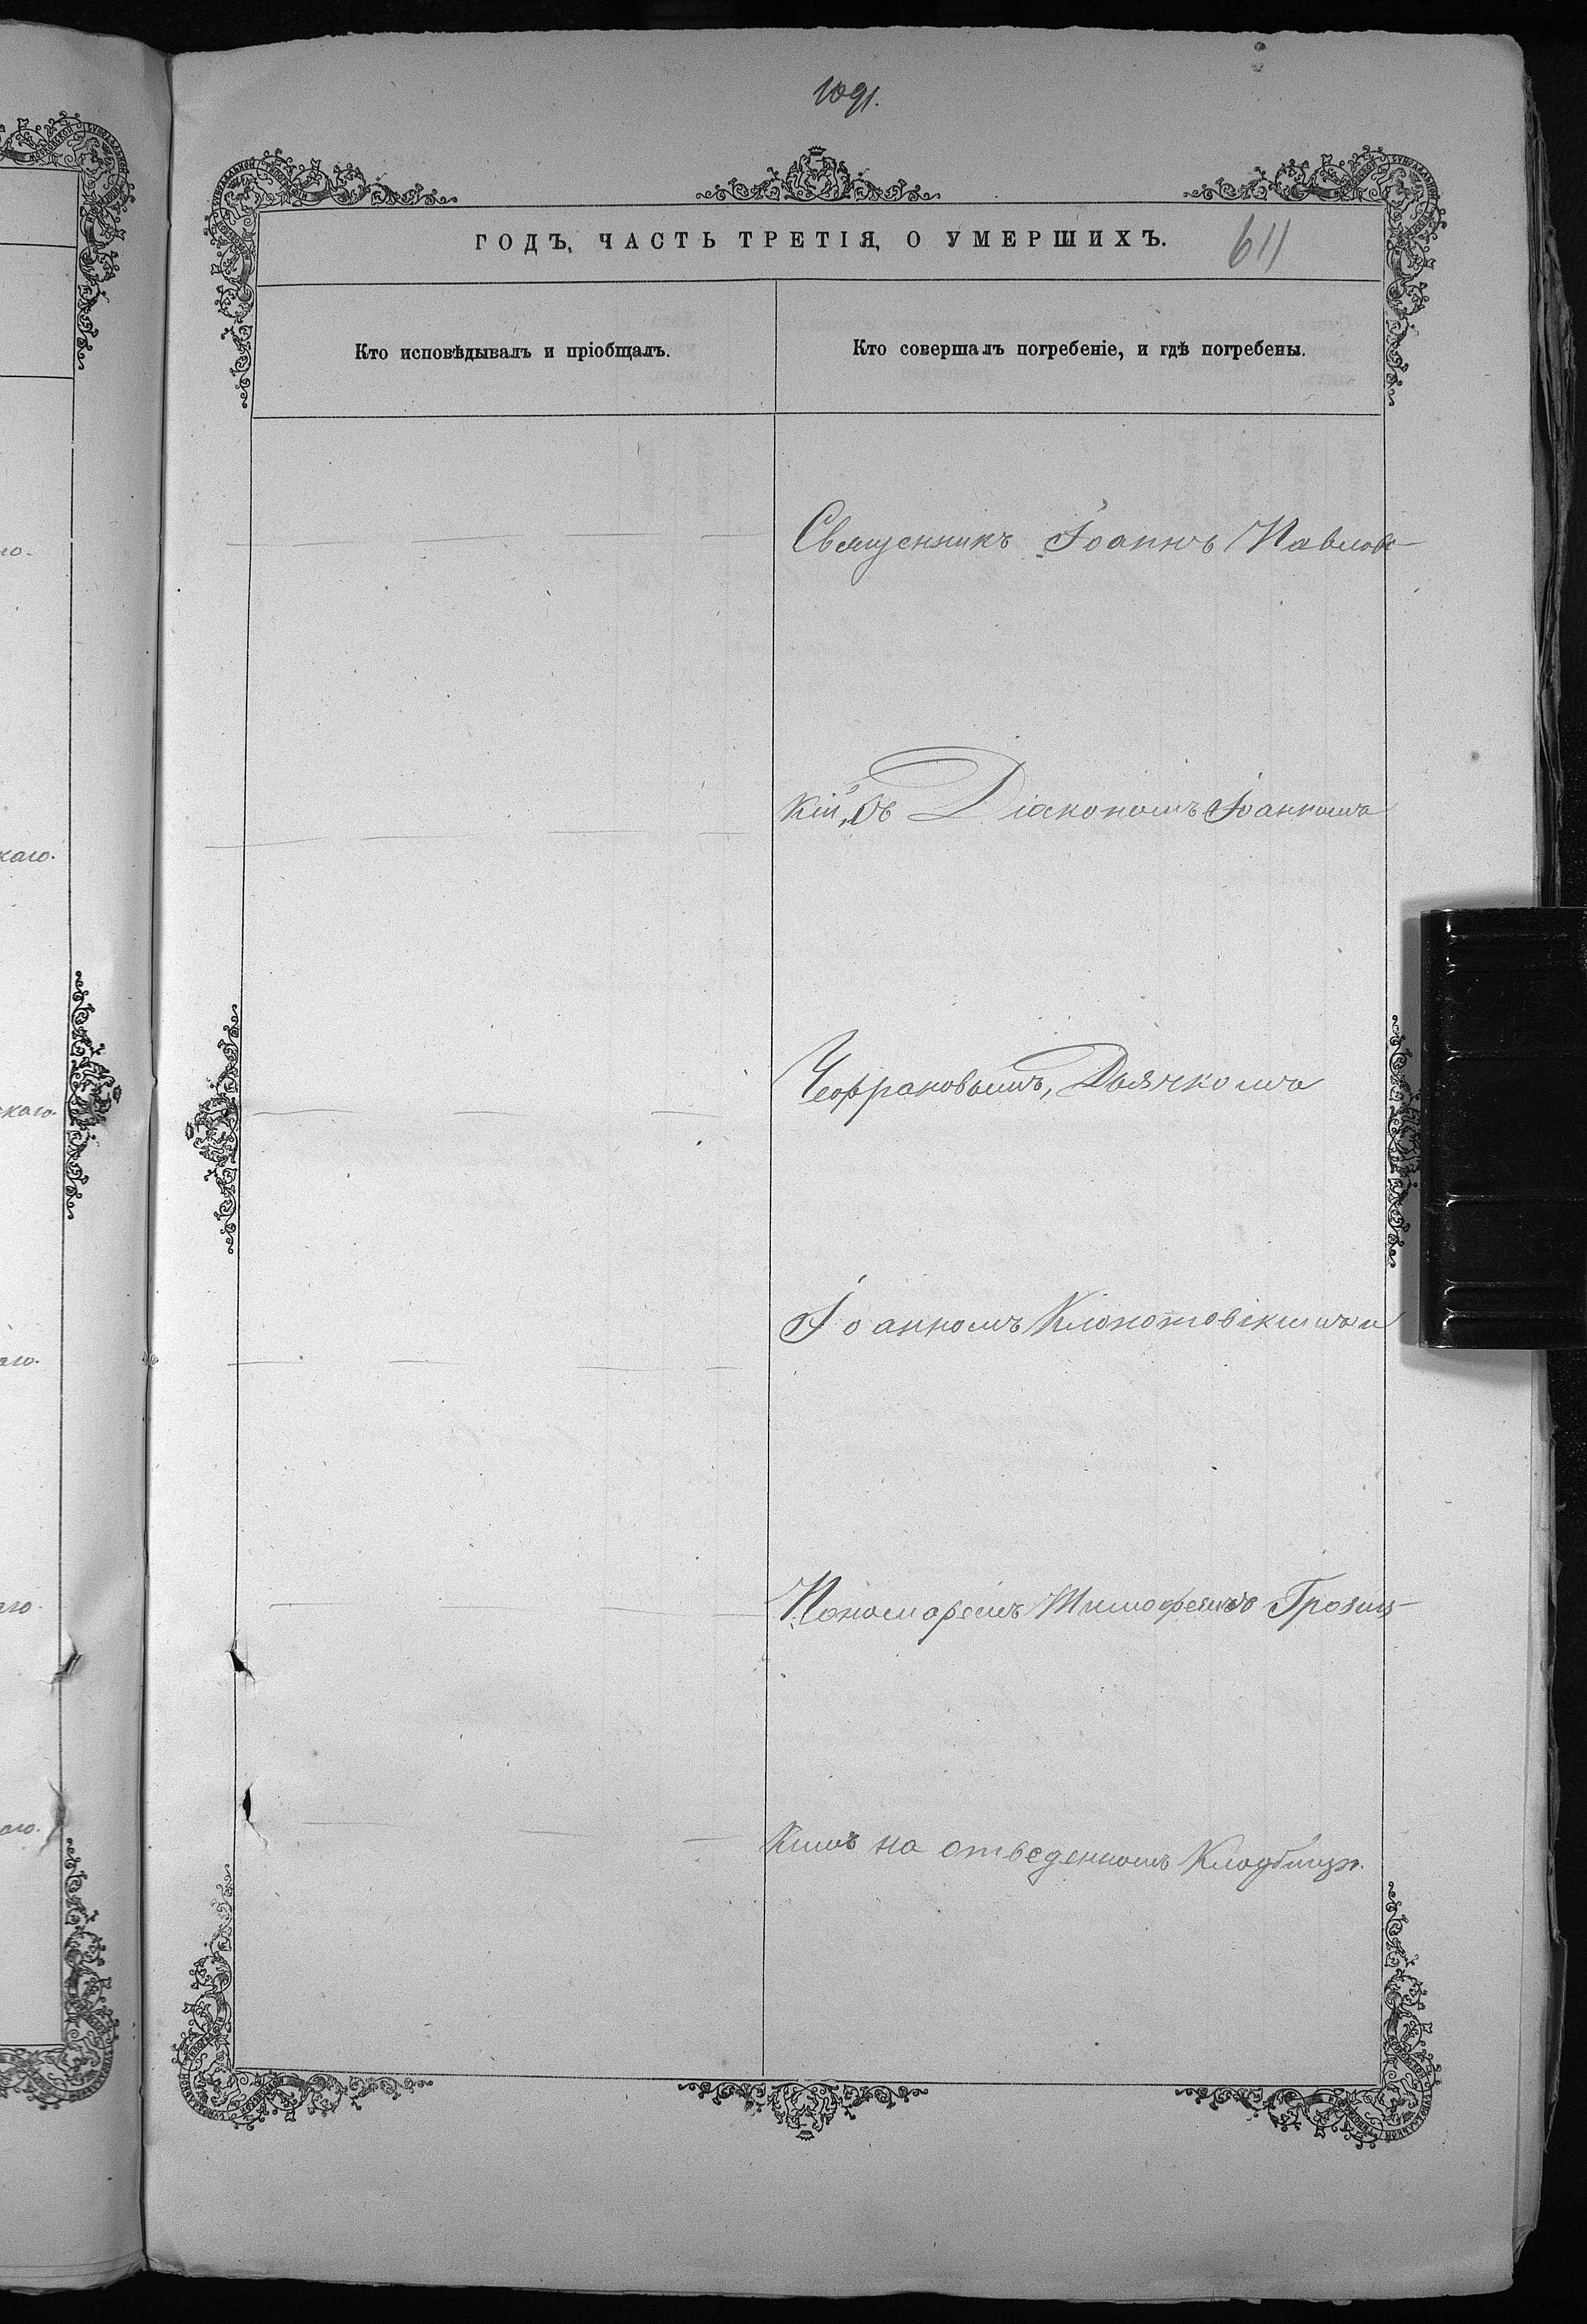 1091.
ГОДЪ, ЧАСТЬ ТРЕТІЯ, О УМЕРШИХЪ.
611
Кто исповѣдывалъ и пріобщалъ.
Кто совершалъ погребеніе, и гдѣ погребены.
Священникъ Іоаннъ Павловс-
кій, съ Діакономъ Іоанномъ
Дьячкомъ
Іоанномъ Клопотовскимъ и
Пономаремъ Тимофеемъ Грозиц-
кимъ на отведенномъ Кладбищѣ.
го.
скаго.
скаго.
аго.
аго.
аго.